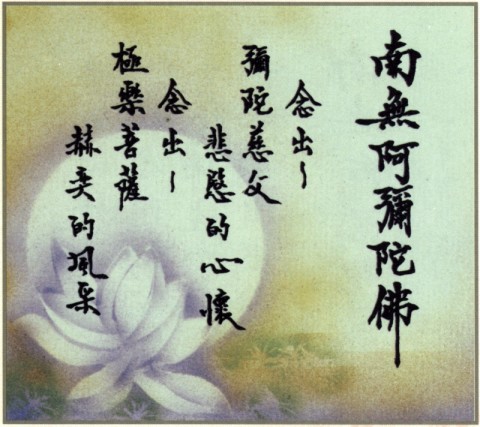 南無阿彌陀佛
念出~
彌陀慈父
悲愍的心懷
念出~
極樂菩薩
赫奕的風采